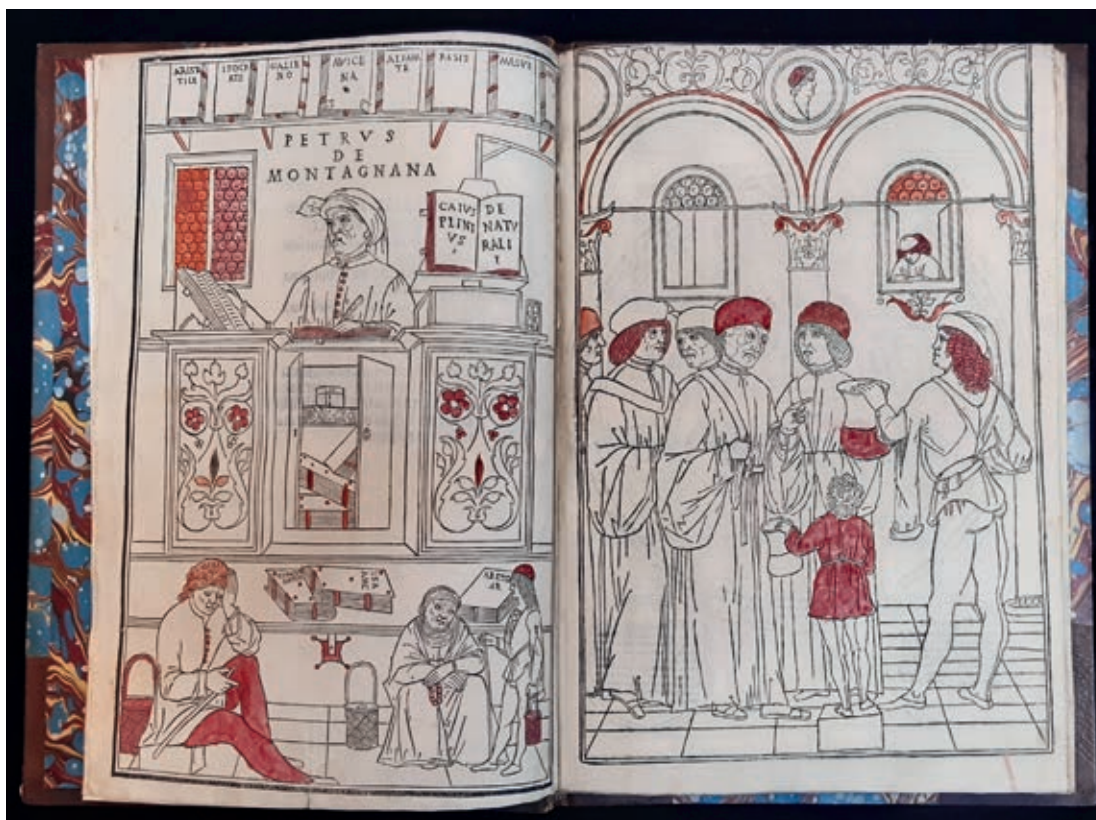 ARIST
TILE
IPOCR
ATE
GALIE
NO
AVICE
NA
RASIS
MESVE
PETRVS
DE
MONTAGNANA
CAIVS
PLINI
VS
DE
NATV
RALI